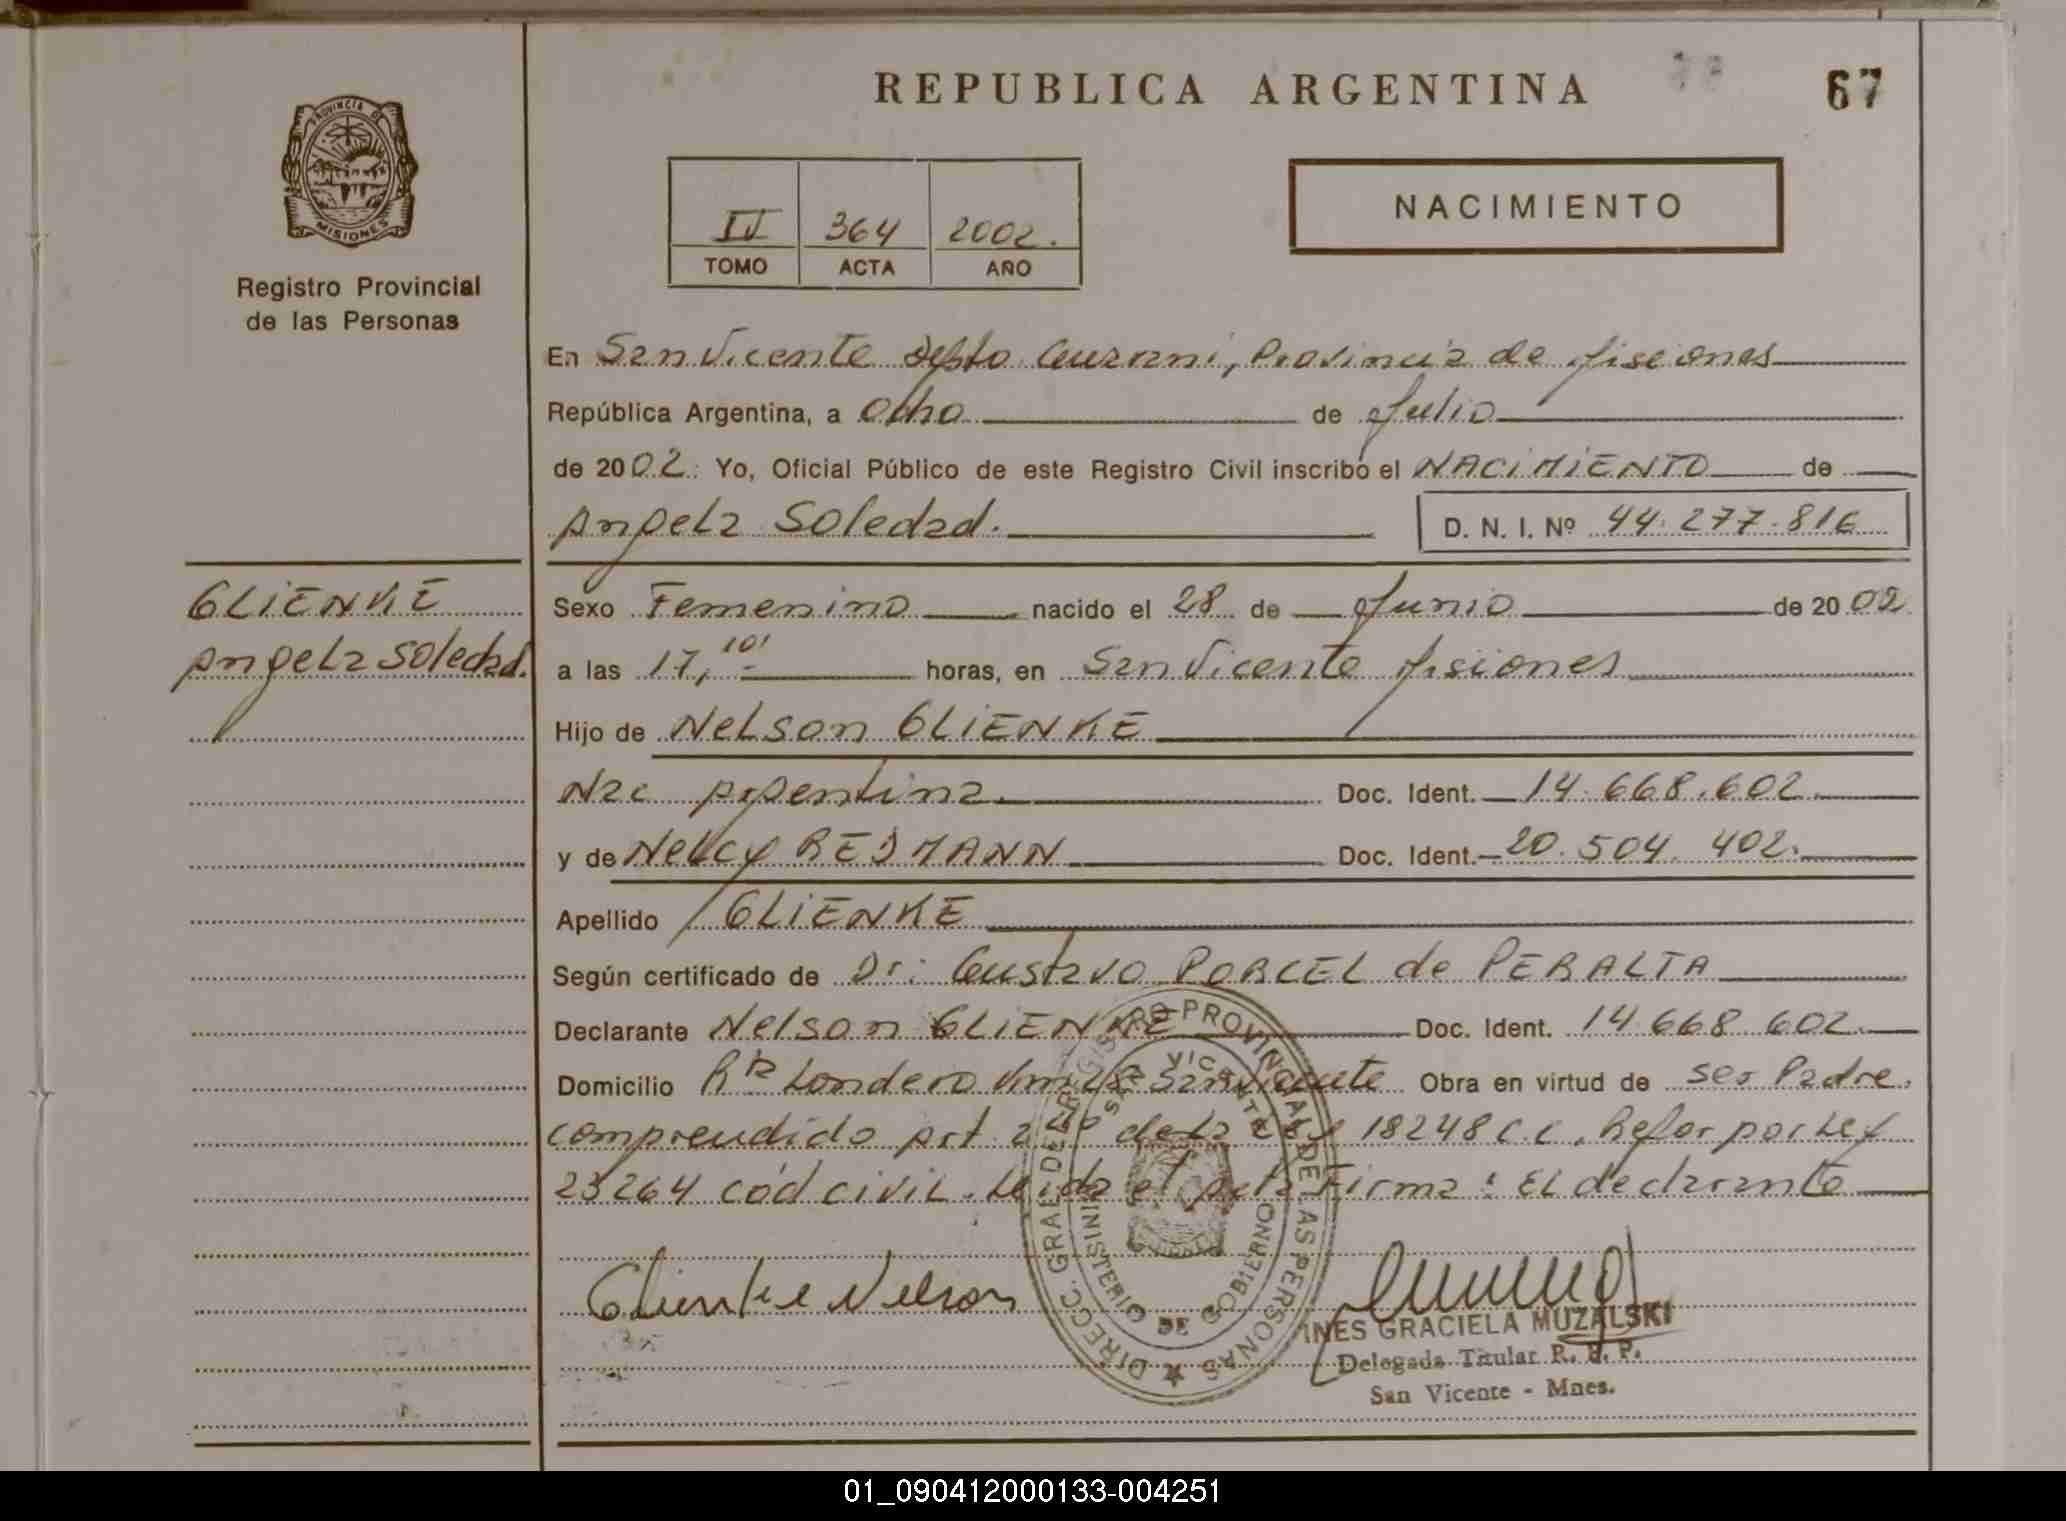 REPUBLICA ARGENTINA
67
PROVINCIA DE
MISIONES
Registro Provincial
de las Personas
IV 364 2002.
TOMO ACTA AÑO
NACIMIENTO
En San Vicente Depto Guarani, Provincia de Misiones
República Argentina, a Ocho de Julio
de 2002. Yo, Oficial Público de este Registro Civil inscribo el NACIMIENTO de
Angela Soledad.
D. N. I. Nº 44.277.816
GLIENKE
Angela Soledad.
Sexo Femenino nacido el 28 de Junio de 2002
a las 17,10' horas, en San Vicente Misiones
Hijo de Nelson GLIENKE
Nac Argentina. Doc. Ident. 14.668.602.
y de Nelcy REDMANN Doc. Ident. 20.504.402.
Apellido GLIENKE
Según certificado de Dr: Gustavo PORCEL de PERALTA
Declarante Nelson GLIENKE Doc. Ident. 14.668.602.
Domicilio Rta Londero Km 28 San Vicente Obra en virtud de ser Padre.
comprendido Art. 2do de la Ley 18248 C.C. Refor por Ley
23264 cód civil. Leida el acta Firma: El declarante
Glienke Nelson
DIRECC. GRAL DE REGISTRO PROVINCIAL DE LAS PERSONAS
SAN VICENTE
MINISTERIO DE GOBIERNO
INES GRACIELA MUZALSKI
Delegada Titular R. P. P.
San Vicente - Mnes.
01_090412000133-004251